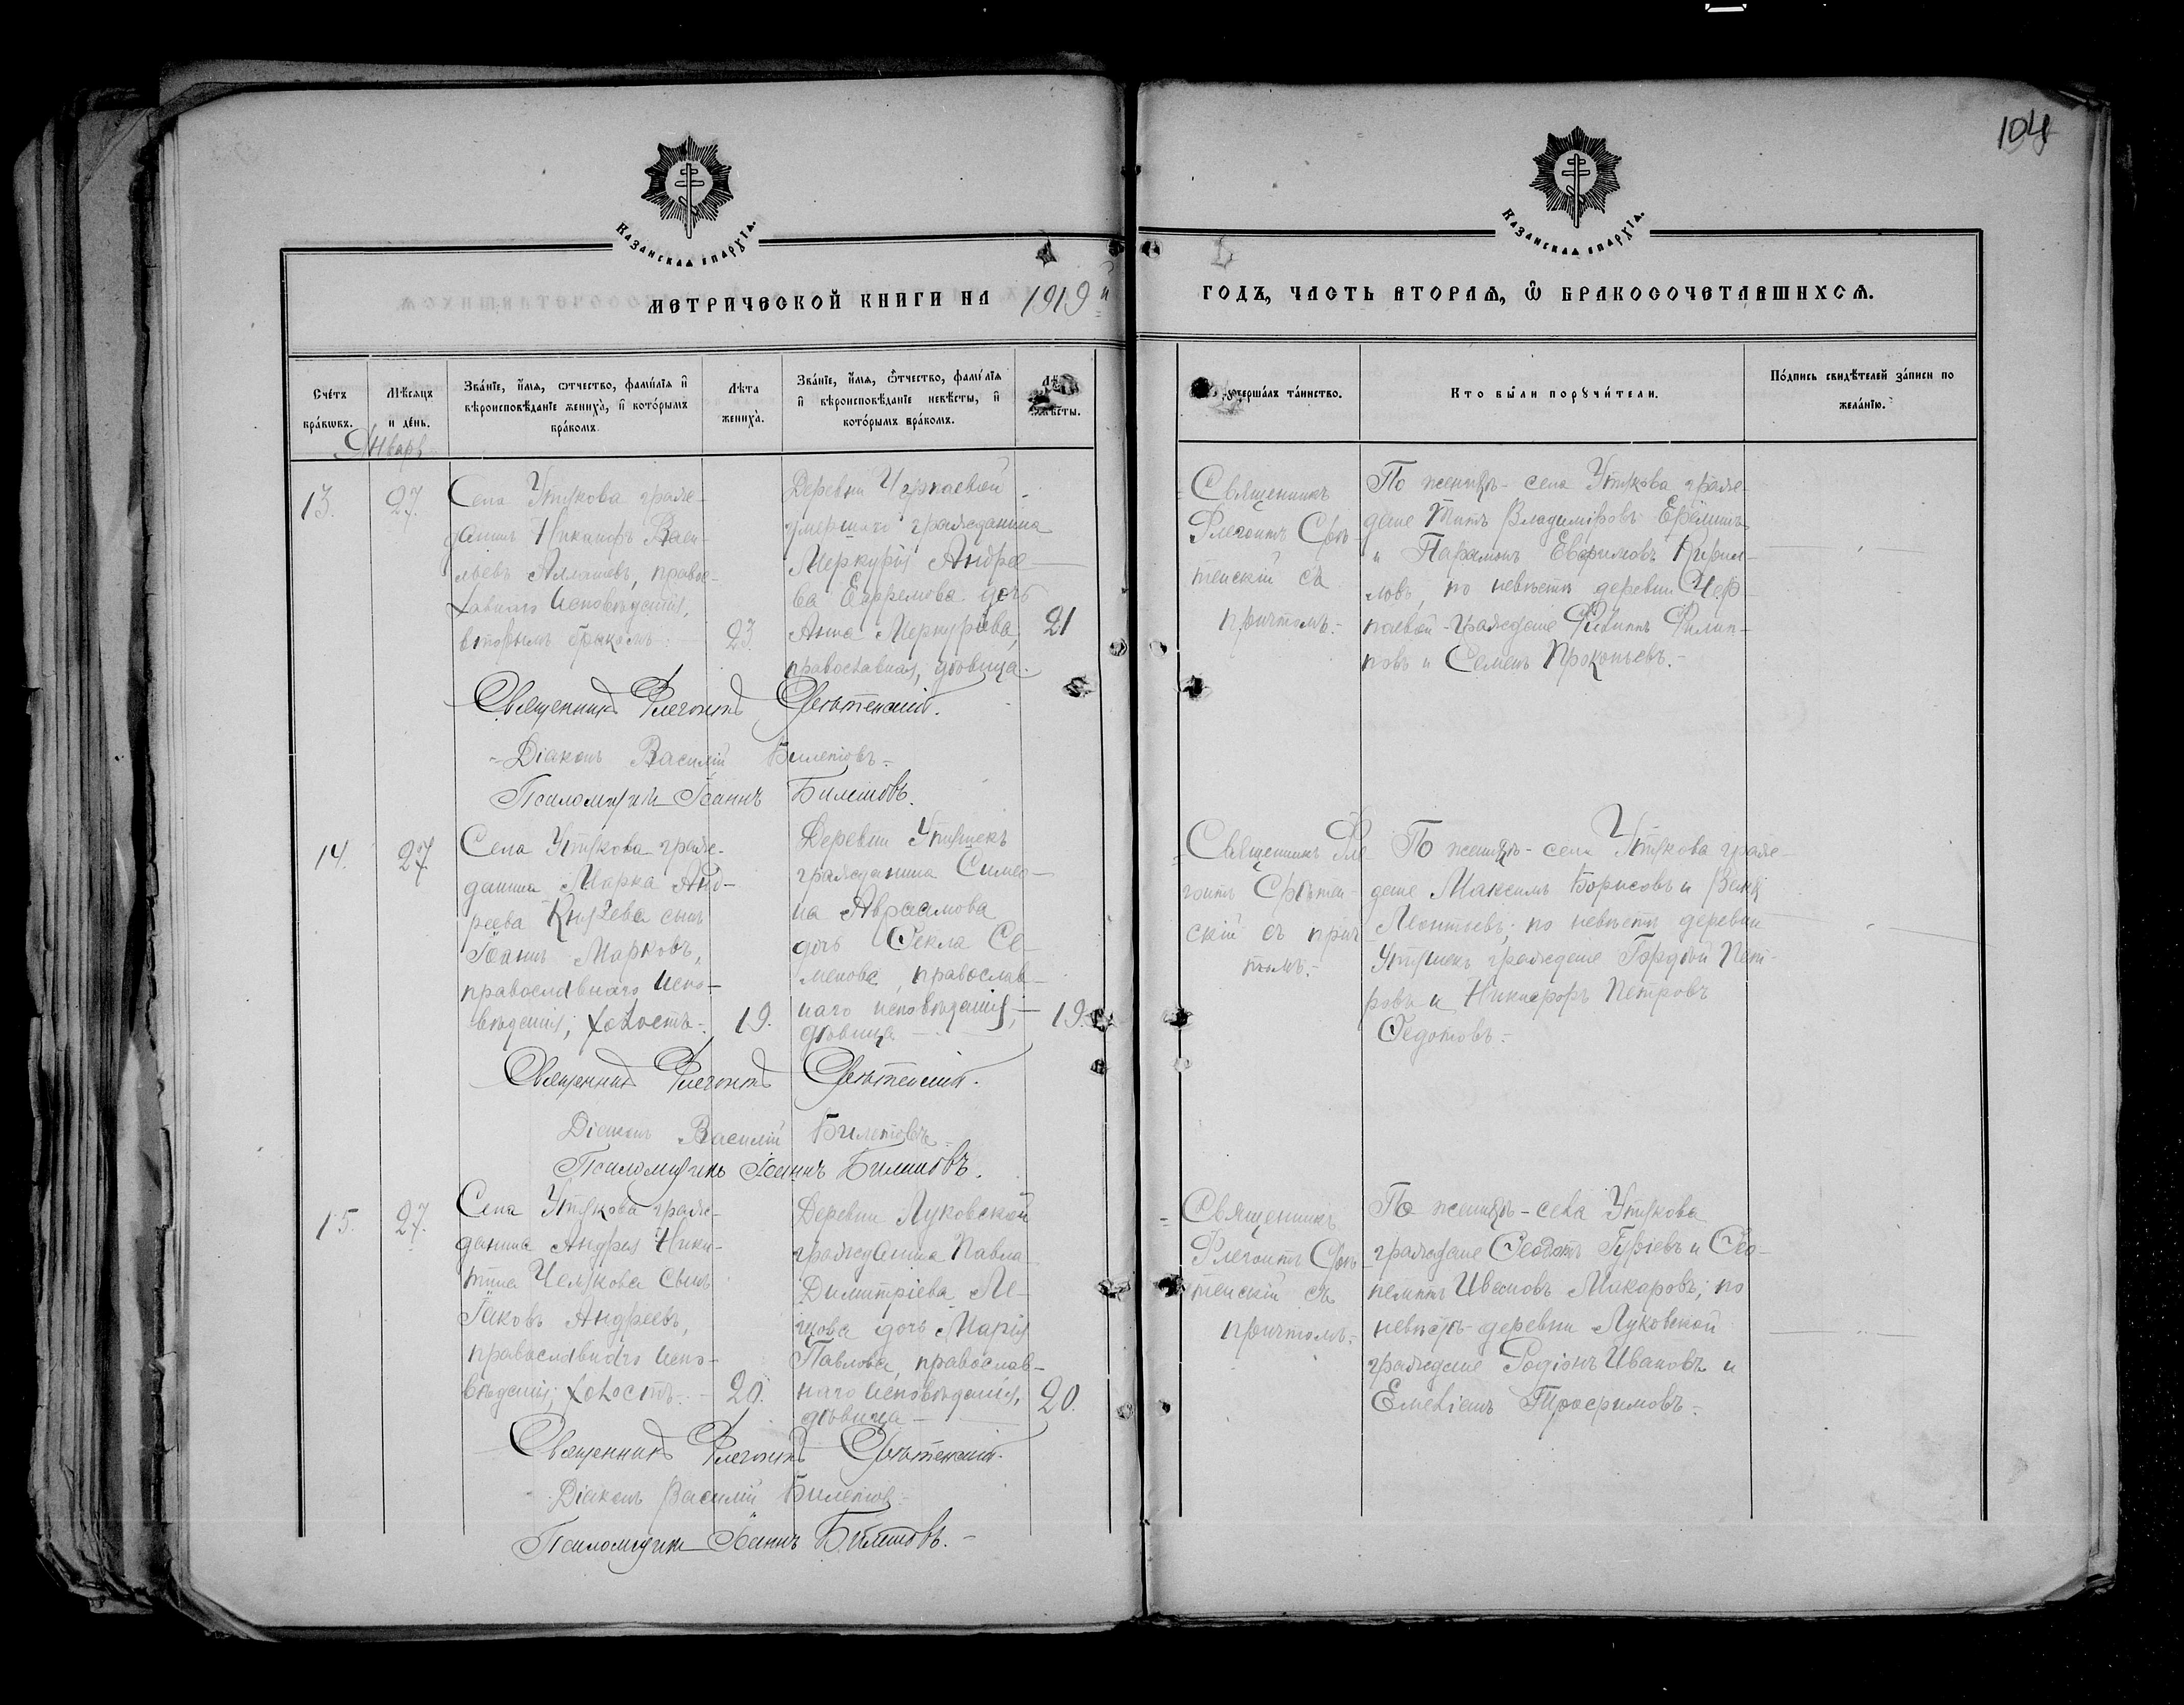 104
Казанская епархїа.
Казанская епархїа.
Метрической книги на 1919й
годъ, часть вторая, ѡ бракосочетавшихся.
Сче́тъ бра́кѡвъ.
Мѣ́сяцъ и де́нь.
Зва́нїе, и́мя, ѻтчество, фами́лїя и вѣроисповѣ́данїе жениха̀, и кото́рымъ бра́комъ.
Лѣ́та жениха̀.
Зва́нїе, и́мя, ѻтчество, фами́лїя и вѣроисповѣ́данїе невѣ́сты, и кото́рымъ бра́комъ.
соверша́лъ та́инство.
Кто бы́ли поручи́тели.
По́дпись свидѣ́телей за́писи по жела́нїю.
Январь
13.
27.
Села Утякова граж-
данинъ Никаноръ Васи-
льевъ, право-
славнаго исповѣданія,
вторымъ бракомъ.
23.
Деревни
умершаго гражданина
Меркурія Андрее-
ва Ефремова дочь
Анна Меркурiева,
православная, дѣвица.
21
Священникъ
Флегонтъ Срѣ-
тенскій съ
причтомъ.-
По женихѣ - села Утякова граж-
дане Титъ Владиміровъ Ерёминъ
и Парамонъ Евфимовъ Кирил-
ловъ, по невѣстѣ деревни Чер-
паевой - граждане Филиппъ Филип-
повъ и Семенъ Прокопьевъ.-
Священникъ Флегонтъ Срѣтенскій.
Діаконъ Василій Билетовъ.
Псаломщикъ Іоаннъ Билетовъ.
14.
27
Села Утякова граж-
данина Марка Анд-
реева Князева сынъ
Іоаннъ Марковъ,
православнаго испо-
вѣданія, холостъ.
19.
Деревни
гражданина Симео-
на Авраамова
дочь Ѳекла Се-
менова, православ-
наго исповѣданія,
дѣвица
19.
Священникъ Фле-
гонтъ Срѣтен-
скій съ прич-
томъ.-
По женихѣ - села Утякова граж-
дане Максимъ Борисовъ и
Леонтьевъ; по невѣстѣ деревни
граждане Гордѣй Пет-
ровъ и Никифоръ Петровъ
Ѳедотовъ.-
Священникъ Флегонтъ Срѣтенскій.
Діаконъ Василій Билетовъ.
Псаломщикъ Іоаннъ Билетовъ.
15.
27.
Села Утякова граж-
данина Андрея Ники-
тина сынъ
Іаковъ Андреевъ,
православнаго испо-
вѣданія, холостъ.
20.
Деревни Луковской
гражданина Павла
Димитріева
дочь Марія
Павлова, православ-
наго исповѣданія,
дѣвица
20.
Священникъ
Флегонтъ Срѣ-
тенскій съ
причтомъ.-
По женихѣ - села Утякова
граждане Ѳеодотъ Гурiевъ и Ѳео-
пемптъ Ивановъ Макаровъ; по
невѣстѣ - деревни Луковской
граждане Родіонъ Ивановъ и
Емеліанъ Трофимовъ.-
Священникъ Флегонтъ Срѣтенскій.
Діаконъ Василій Билетовъ.
Псаломщикъ Іоаннъ Билетовъ.-